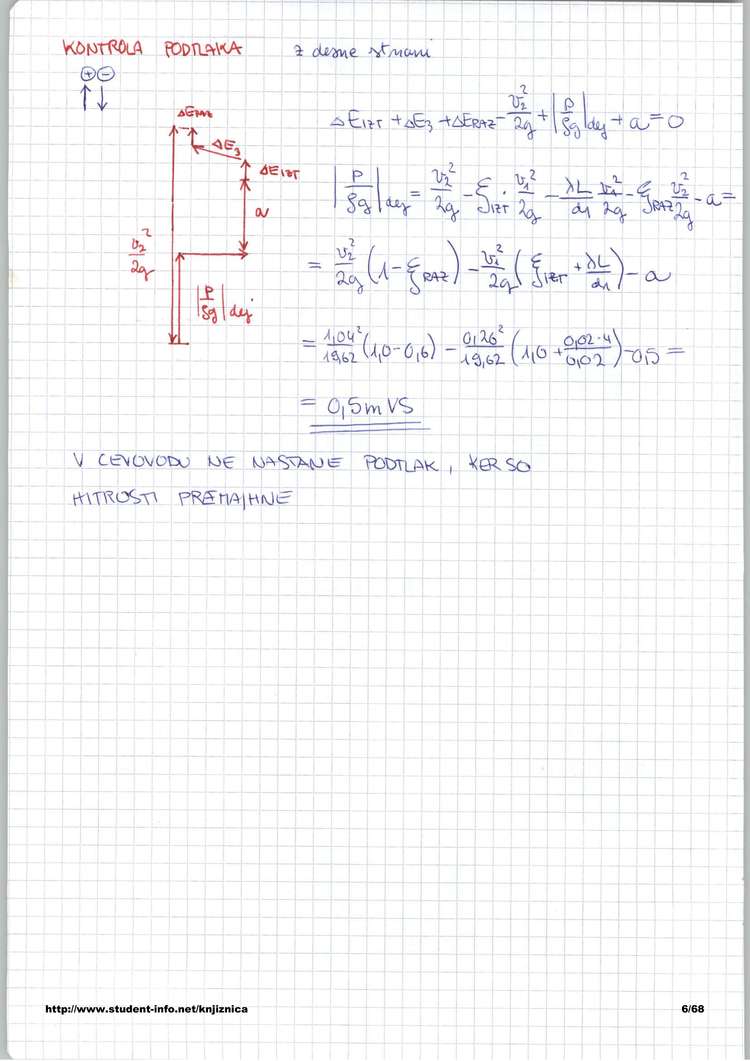 KONTROLA PODTLAKA z desne strani
⊕⊖
↑↓
ΔE_RAZ
ΔE_3
ΔE_IZT
a
v_2^2/2g
|P/ρg|dej
ΔE_IZT + ΔE_3 + ΔE_RAZ - v_2^2/2g + |P/ρg|dej + a = 0
|P/ρg|dej = v_2^2/2g - ξ_IZT · v_1^2/2g - λL/d_1 v_1^2/2g - ξ_RAZ v_2^2/2g - a =
= v_2^2/2g (1 - ξ_RAZ) - v_1^2/2g (ξ_IZT + λL/d_1) - a
= 1,04^2/19,62 (1,0 - 0,6) - 0,26^2/19,62 (1,0 + 0,02·4/0,02) - 0,5 =
= 0,5 m VS
V CEVOVODU NE NASTANE PODTLAK, KER SO
HITROSTI PREMAJHNE
http://www.student-info.net/knjiznica 6/68